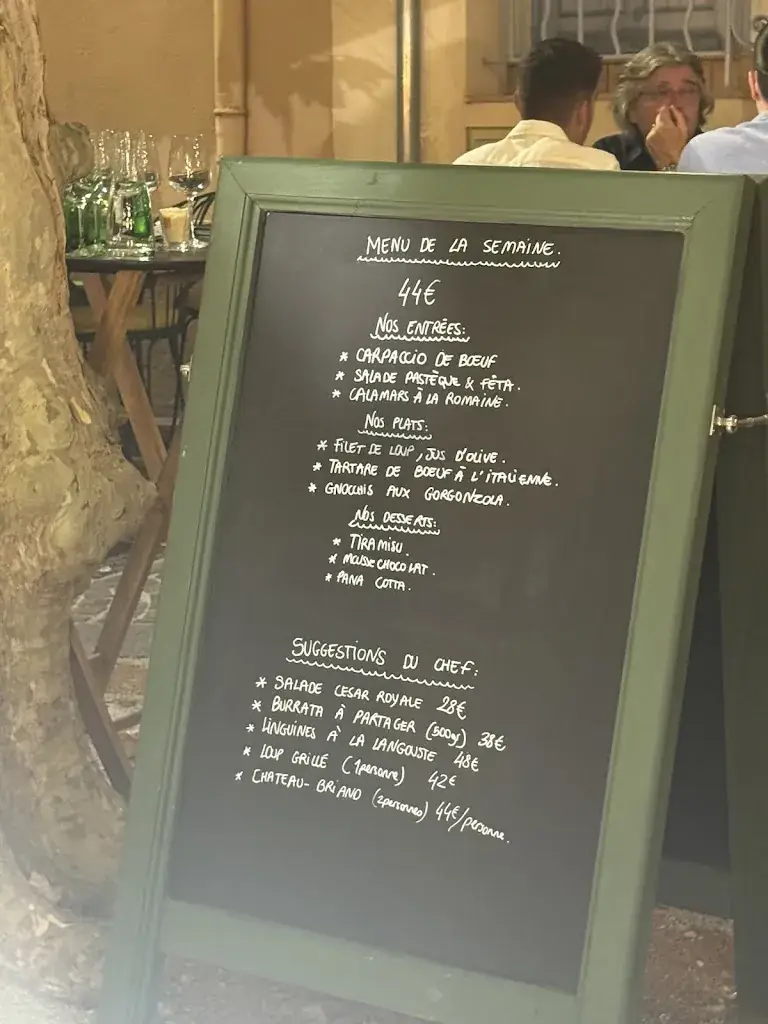 MENU DE LA SEMAINE.
44€
NOS ENTRÉES:
* CARPACCIO DE BŒUF
* SALADE PASTÈQUE & FÊTA.
* CALAMARS À LA ROMAINE.
NOS PLATS:
* FILET DE LOUP, JUS D'OLIVE.
* TARTARE DE BOEUF À L'ITALIENNE.
* GNOCCHIS AUX GORGONZOLA.
NOS DESSERTS:
* TIRAMISU.
* MOUSSE CHOCOLAT.
* PANA COTTA.
SUGGESTIONS DU CHEF:
* SALADE CESAR ROYALE 28€
* BURRATA À PARTAGER (500gr) 38€
* LINGUINES À LA LANGOUSTE 48€
* LOUP GRILLÉ (1personne) 42€
* CHATEAU-BRIAND (2personnes) 44€/personne.